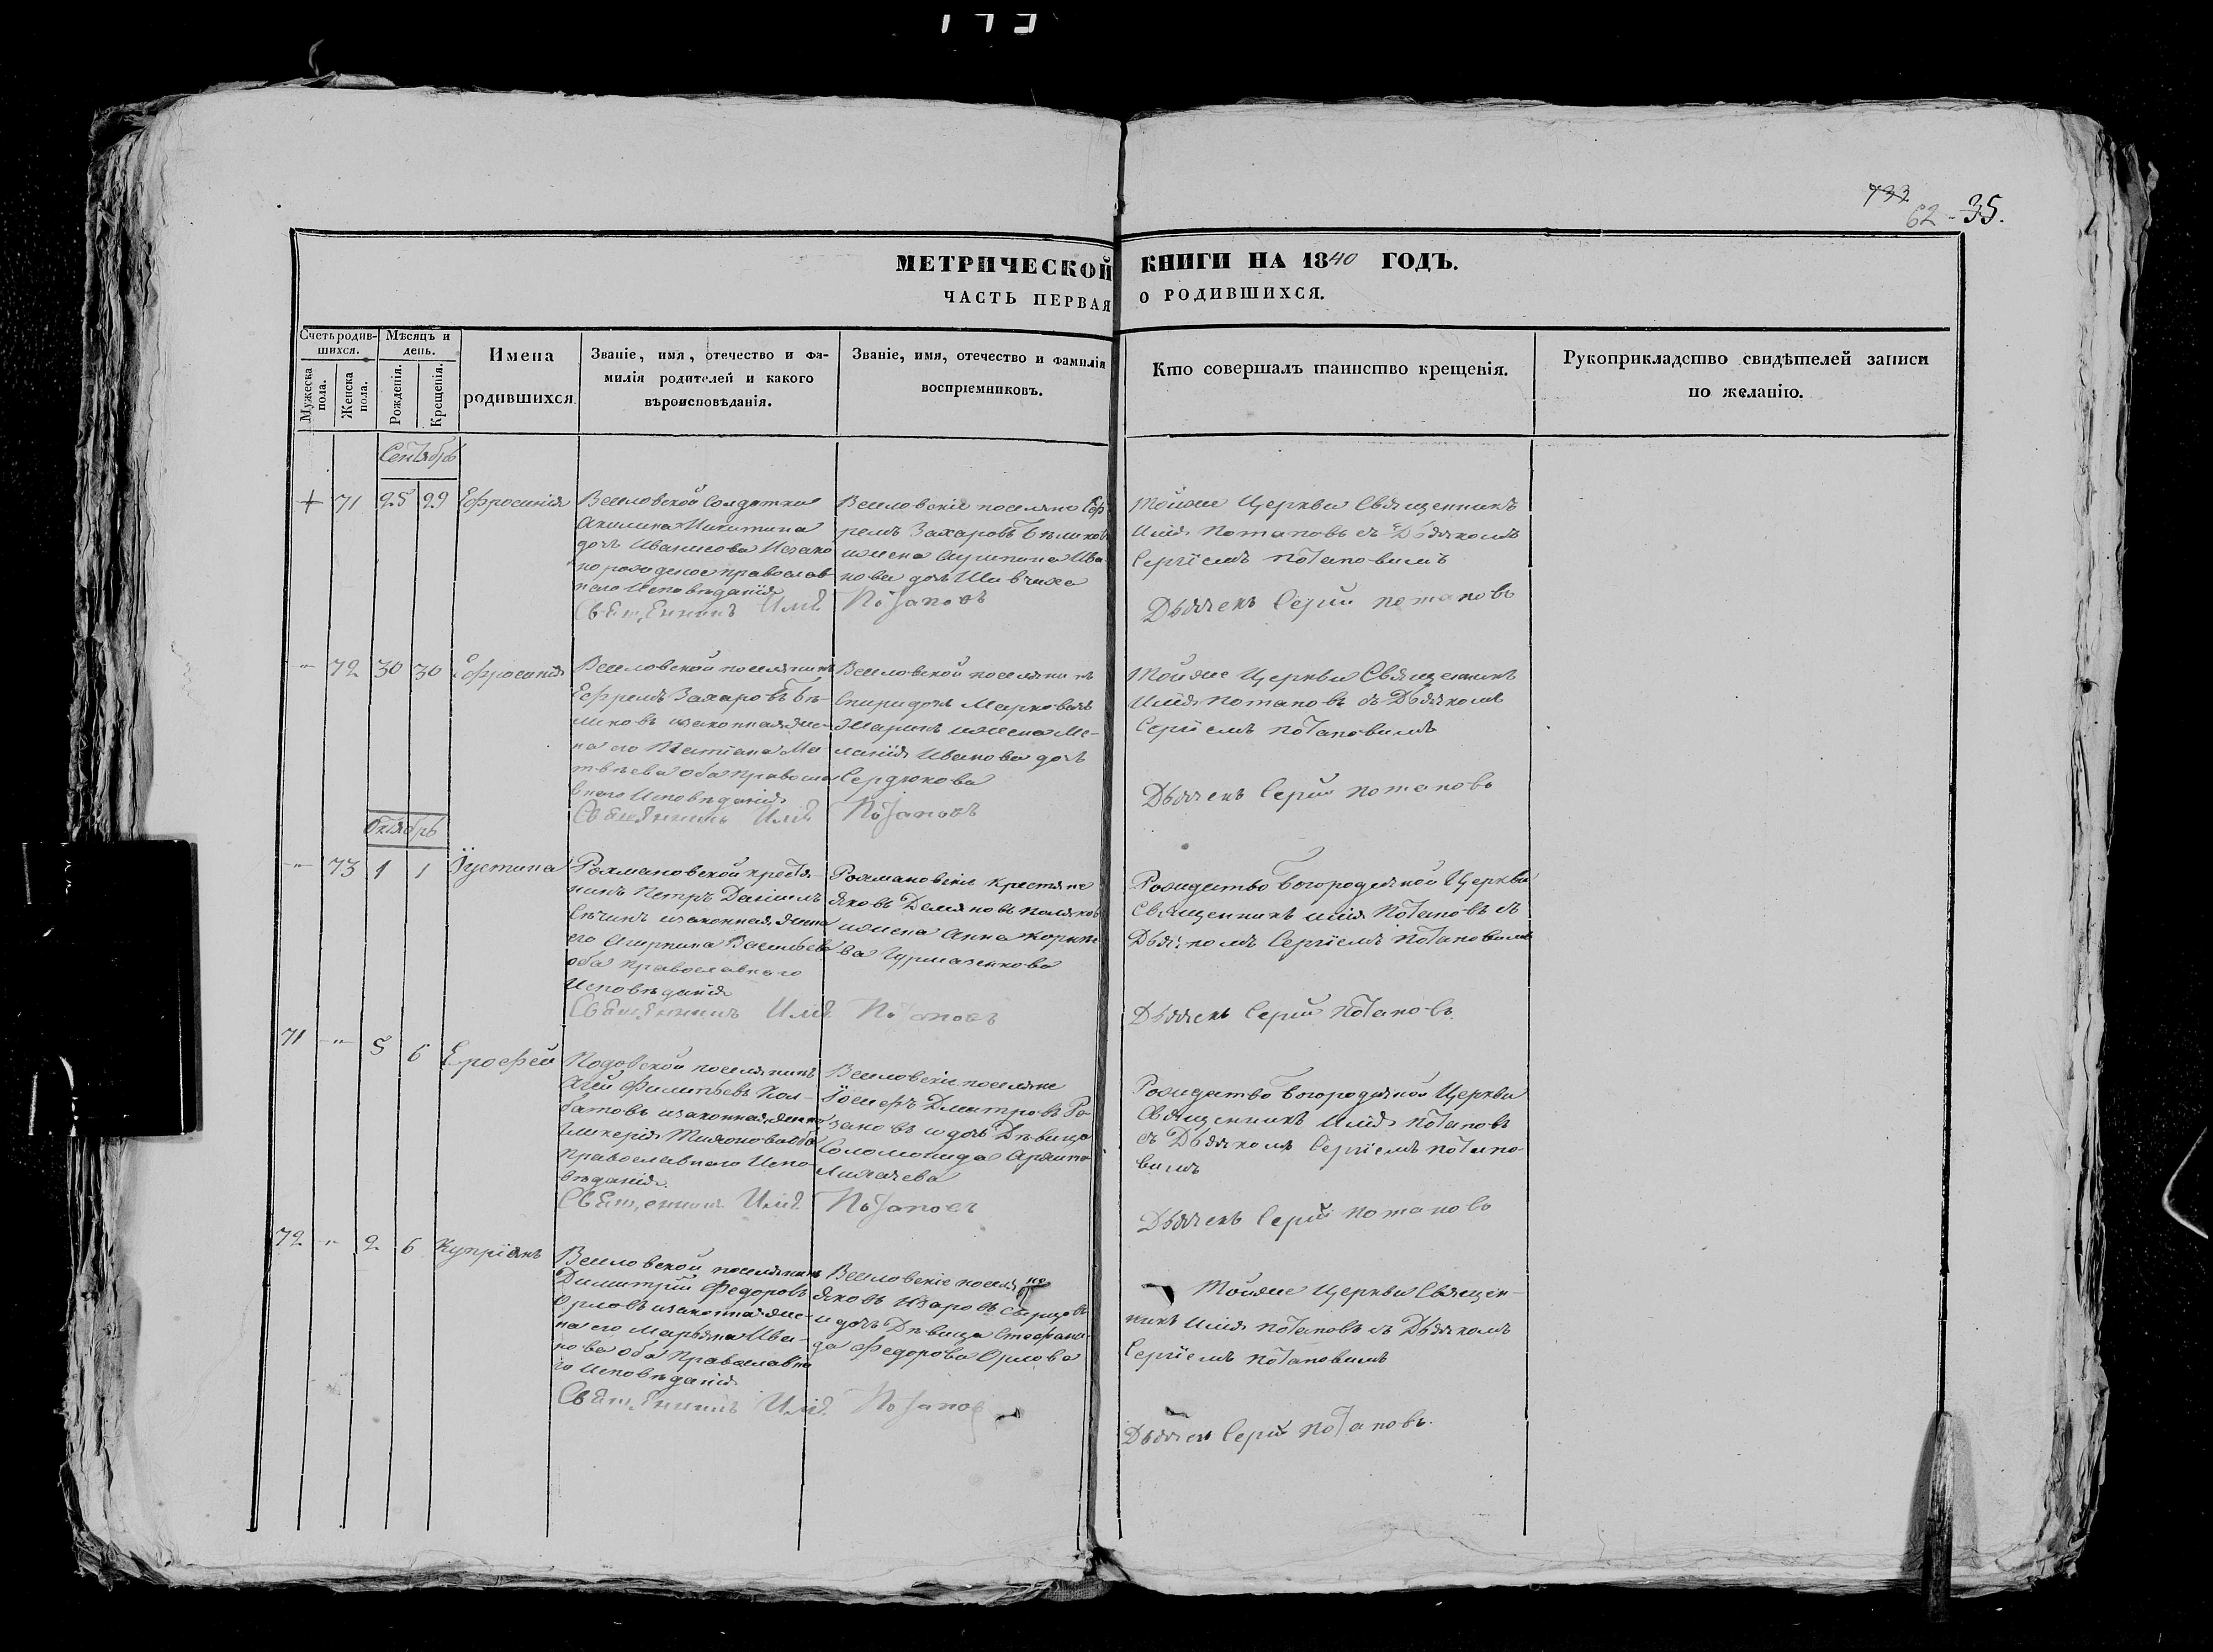 733
62 - 35.
МЕТРИЧЕСКОЙ КНИГИ НА 1840 ГОДЪ.
ЧАСТЬ ПЕРВАЯ О РОДИВШИХСЯ.
Счетъ родив-
шихся.
Мужеска пола.
Женска пола.
Мѣсяцъ и
день.
Рожденія.
Крещенія.
Имена
родившихся.
Званіе, имя, отечество и фа-
милія родителей и какого
вѣроисповѣданія.
Званіе, имя, отечество и фамилія
воспріемниковъ.
Кто совершалъ таинство крещенія.
Рукоприкладство свидѣтелей записи
по желанію.
Сентябрь
71 25 29 Ефросинія
Солдатка
Акилина Никитина
дочь Иванисова Незако
норожденое православ
наго Исповѣданія
Священникъ Илія Потаповъ
поселяне Еф
ремъ Захаровъ Бѣликовъ
Ива
нова дочь
Тойже Церкви Священникъ
Илія Потаповъ съ Дьячкомъ
Сергіемъ Потаповымъ
Дьячекъ Сергій Потаповъ
" 72 30 30 Ефросинія
поселянинъ
Ефремъ Захаровъ Бѣ-
ликовъ изаконная же-
на его Татіана Ма
твѣева оба правосла
внаго Исповѣданія
Священникъ Илія Потаповъ
поселянинъ
Спиридонъ Марковъ
жена Ме-
ланія Иванова дочь
Сердюкова
Тойже Церкви Священникъ
Илія Потаповъ съ Дьячкомъ
Сергіемъ Потаповымъ
Дьячекъ Сергій Потаповъ
Октябрь
" 73 1 1 Іустина
Рахмановской крестья-
нинъ Петръ Даніиловъ
изаконная жена
его Агрипина Васильева
оба православнаго
Исповѣданія
Священникъ Илія Потаповъ
Рахмановскіе крестьяне
Яковъ Демяновъ Поляковъ
ижена Анна Корнѣе
ва
Рождество Богородичной Церкви
Священникъ Илія Потаповъ съ
Дьячкомъ Сергіемъ Потаповымъ
Дьячекъ Сергій Потаповъ.
71 " 5 6 Ерофей
поселянинъ
Филиповъ
изаконная жена
Гликерія оба
православнаго Испо-
вѣданія
Священникъ Илія Потаповъ
поселяне
Іосифъ Дмитровъ Ро-
зановъ идочь Дѣвица
Соломонида
Лихачева
Рождество Богородичной Церкви
Священникъ Илія Потаповъ
съ Дьячкомъ Сергіемъ Потапо-
вымъ
Дьячекъ Сергій Потаповъ
72 " 2 6 Купріянъ
поселянинъ
Димитрій Федоровъ
Орловъ изаконная же-
на его Марьяна Ива-
нова оба Православна
го исповѣданія
Священникъ Илія Потаповъ
поселяне
Яковъ
и дочь Дѣвица Стефани-
да Федорова Орлова
Тойже Церкви Священ-
никъ Илія Потаповъ съ Дьячкомъ
Сергіемъ Потаповымъ
Дьячекъ Сергій Потаповъ.